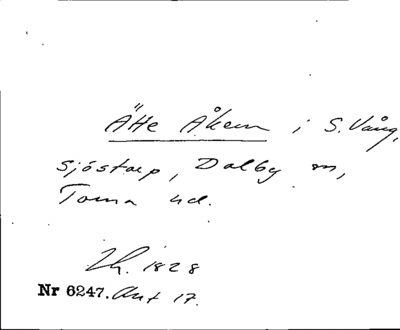 Ätte Åkern i S. Vång,
Sjöstorp, Dalby sn,
Torna hd.
Lh. 1828
Nr 6247. Akt 17.